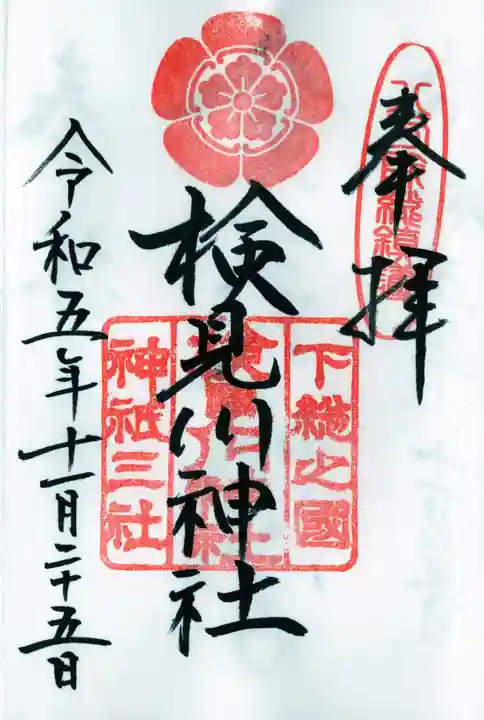 奉拝
検見川神社
下総之國
神祇三社
令和五年十一月二十五日